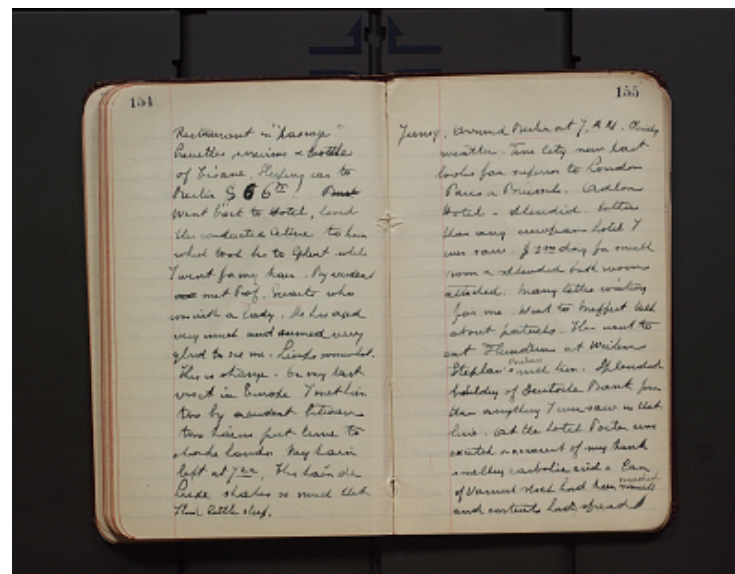 154
Restaurant in "Passage"
Bruxelles, &
of Tisane. Sleeping car to
Berlin $ 6 6
Went back to Hotel, loved
the conducted Celine to him
which took her to Ghent while
I went for my train. By accident
met Prof. Swarts who
was with a lady. He has aged
very much and seemed very
glad to see me. Limps somewhat.
This is strange. On my last
visit in Europe I met him
too by accident between
two trains just time to
shake hands. My train
left at 7 This train de
Luxe shakes so much that
I had little sleep.
155
Arrived Berlin at 7. A.M. Cloudy
weather. The city new but
looks far superior to London
Paris or Brussels. Adlon
Hotel - splendid. better
than any european hotel I
ever saw. $ day for small
room & splendid bath room
attached. Many letters waiting
for me. Went to Meffert talk
about patents. Then went to
eat Flunders at
Stephan's with him. Splendid
building of Deutsche Bank finer
than anything I ever saw in that
line. At the hotel Porter was
excited on account of my trunk
smelling carbolic acid & a Can
of Varnish which had been
and contents had spread